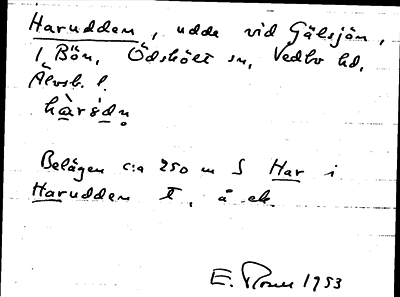 Harudden, udde vid Gälsjön,
1 Bön, Ödskölt sn, Vedbo hd,
Älvsb. l.
Belägen c:a 250 m S Har i
Harudden T, å ek.
E. Rosén 1953